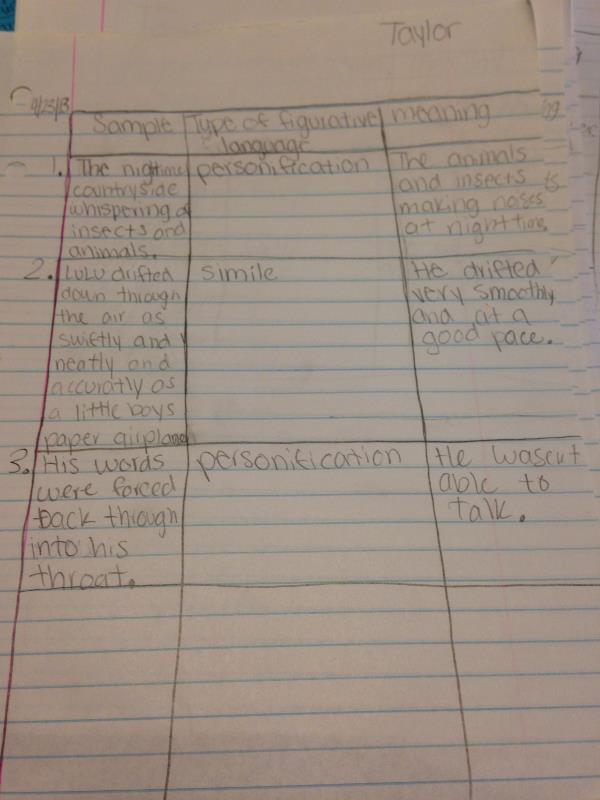 Taylor
9/23/13
Sample Type of figurative language meaning
1. The nigttime
countryside
whispering of
insects and
animals.
personification
The animals
and insects is
making noises
at nighttime.
2. LuLu drifted
down through
the air as
swiftly and
neatly and
accuratly as
a little boys
paper airplane
simile
He drifted
very smoothly
and at a
good pace.
3. His words
were forced
back through
into his
throat.
personification
He wasent
able to
talk.